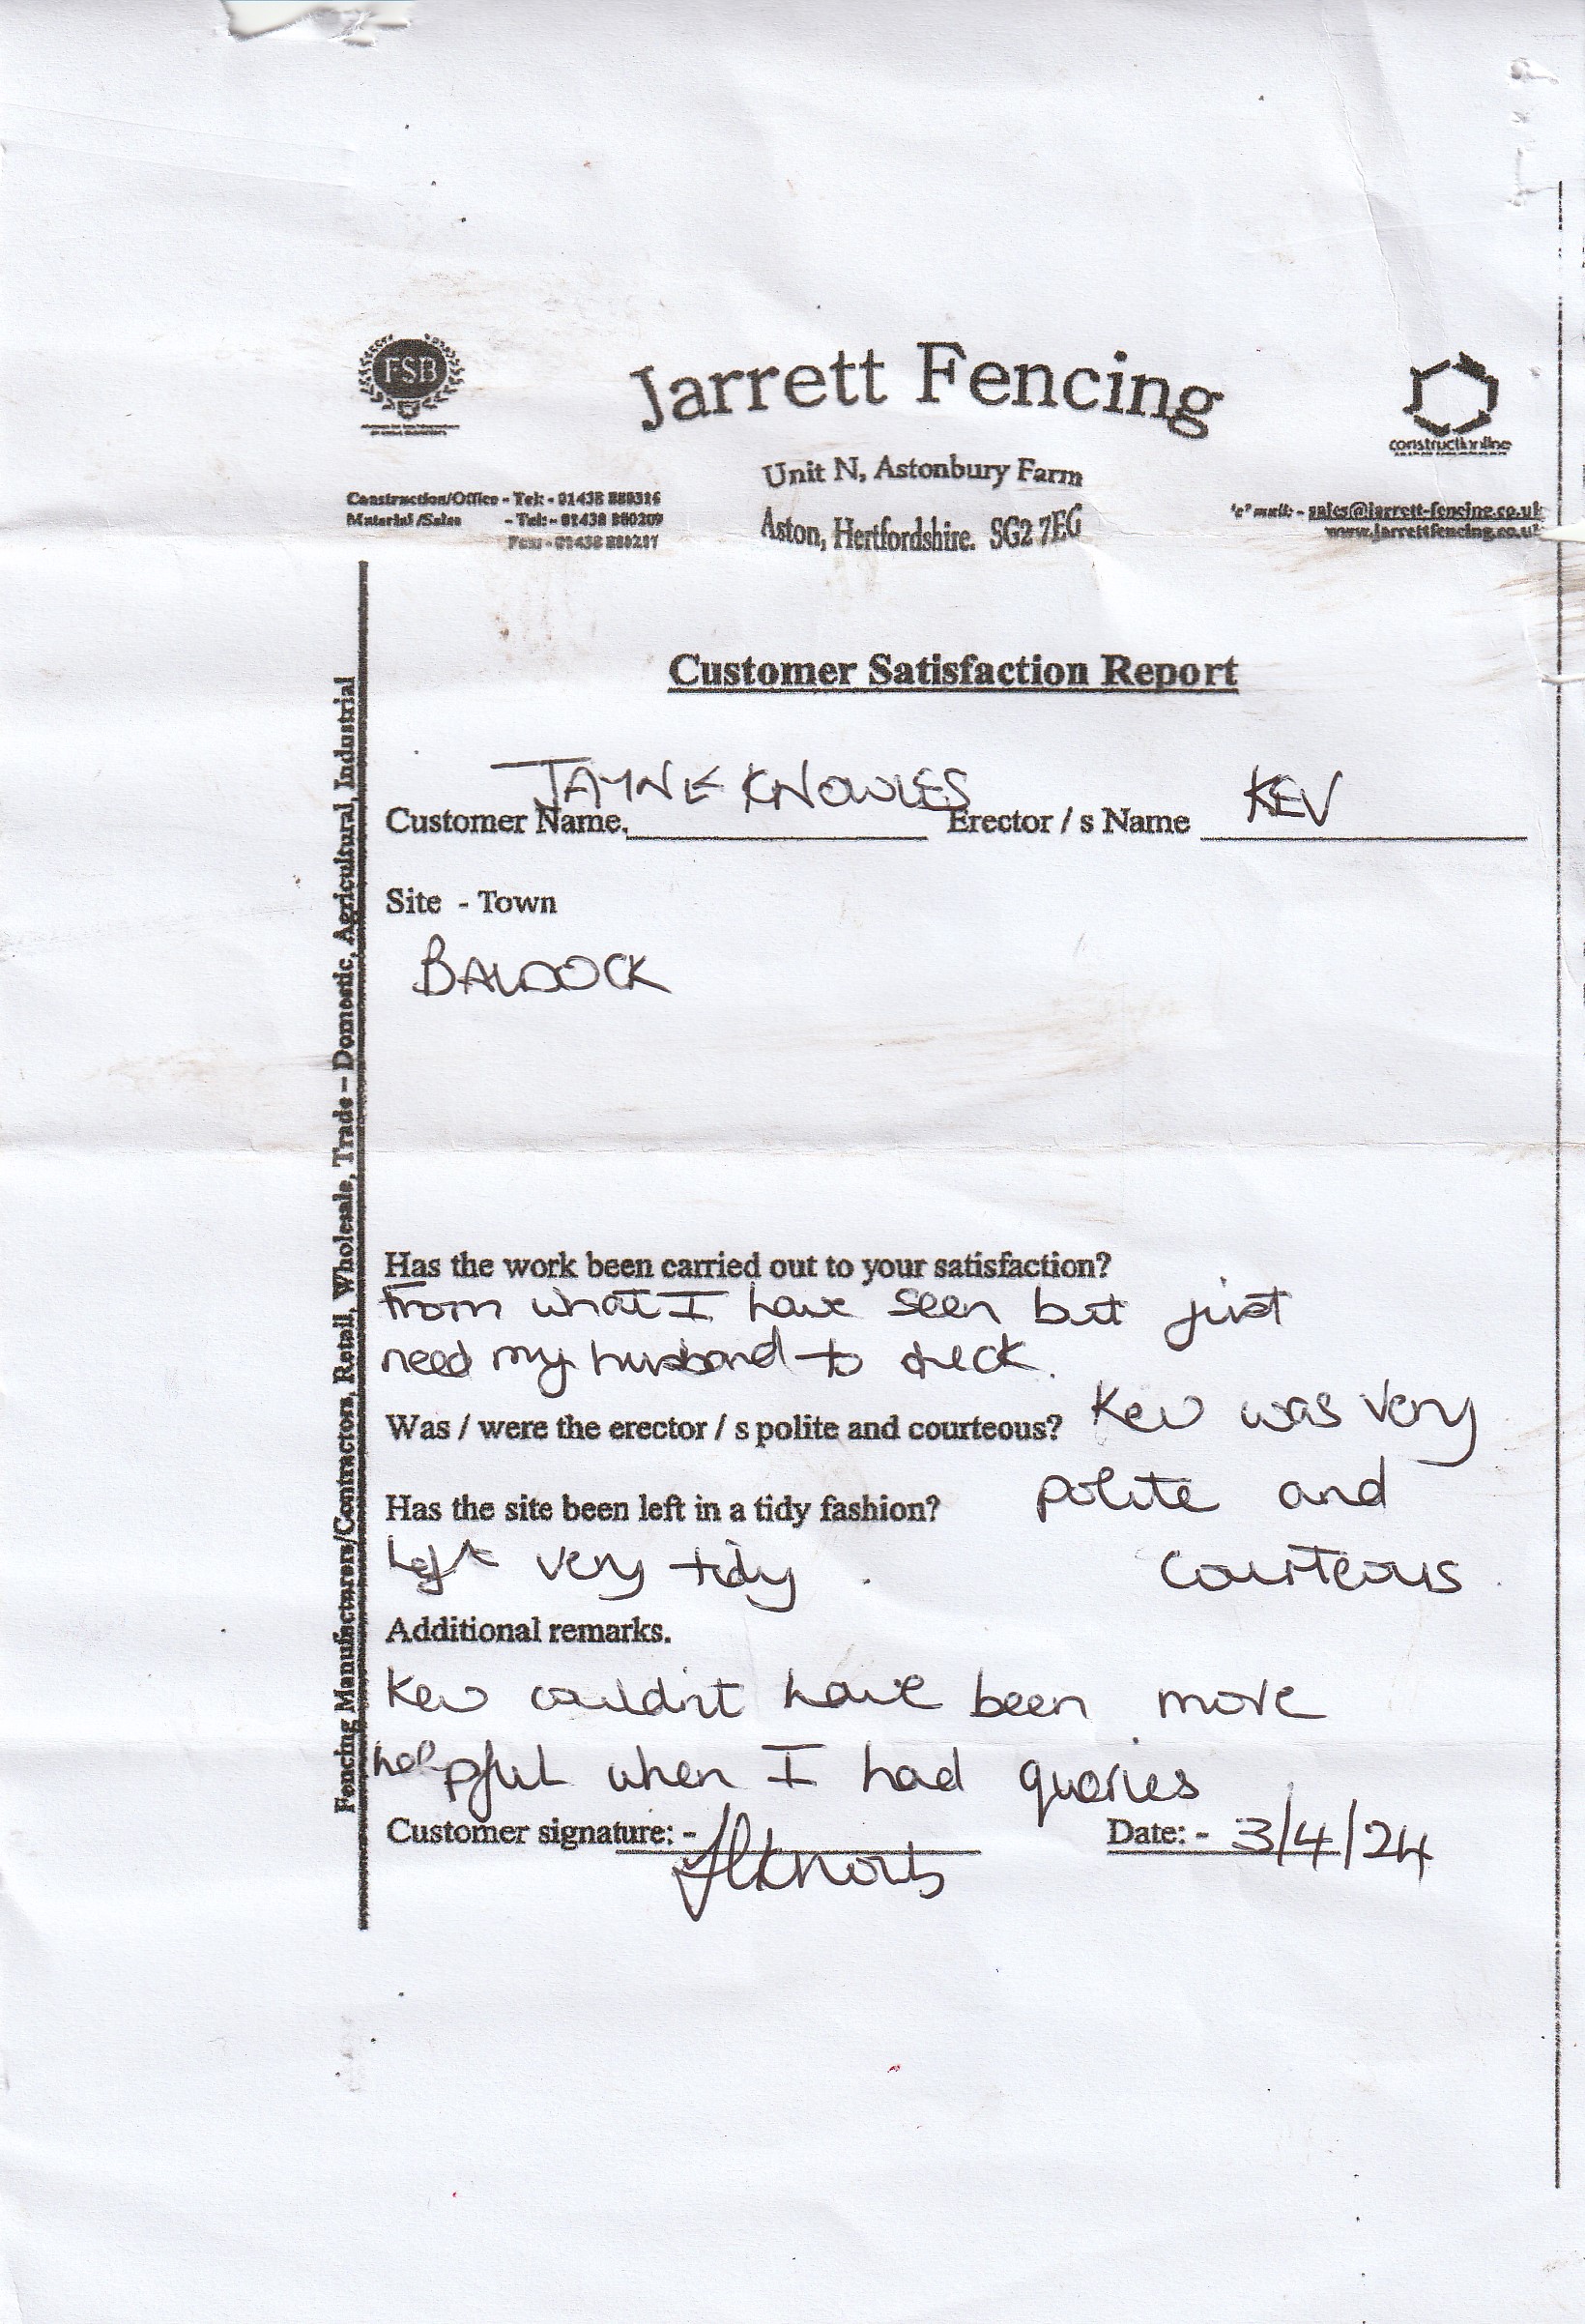 FSB
Jarrett Fencing
constructionline
Unit N, Astonbury Farm
Aston, Hertfordshire. SG2 7EG
Construction/Office - Tel: - 01438 880316
Material /Sales - Tel: - 01438 880209
Fax: - 01438 880217
'e' mail: - sales@jarrett-fencing.co.uk
www.jarrettfencing.co.uk
Fencing Manufacturers/Contractors, Retail, Wholesale, Trade – Domestic, Agricultural, Industrial
Customer Satisfaction Report
Customer Name. JAYNE KNOWLES Erector / s Name KEV
Site - Town
BALDOCK
Has the work been carried out to your satisfaction?
From what I have seen but just
need my husband to check.
Was / were the erector / s polite and courteous? Kev was very
polite and
courteous.
Has the site been left in a tidy fashion?
Left very tidy.
Additional remarks.
Kev couldn't have been more
helpful when I had queries
Customer signature: - Date: - 3/4/24